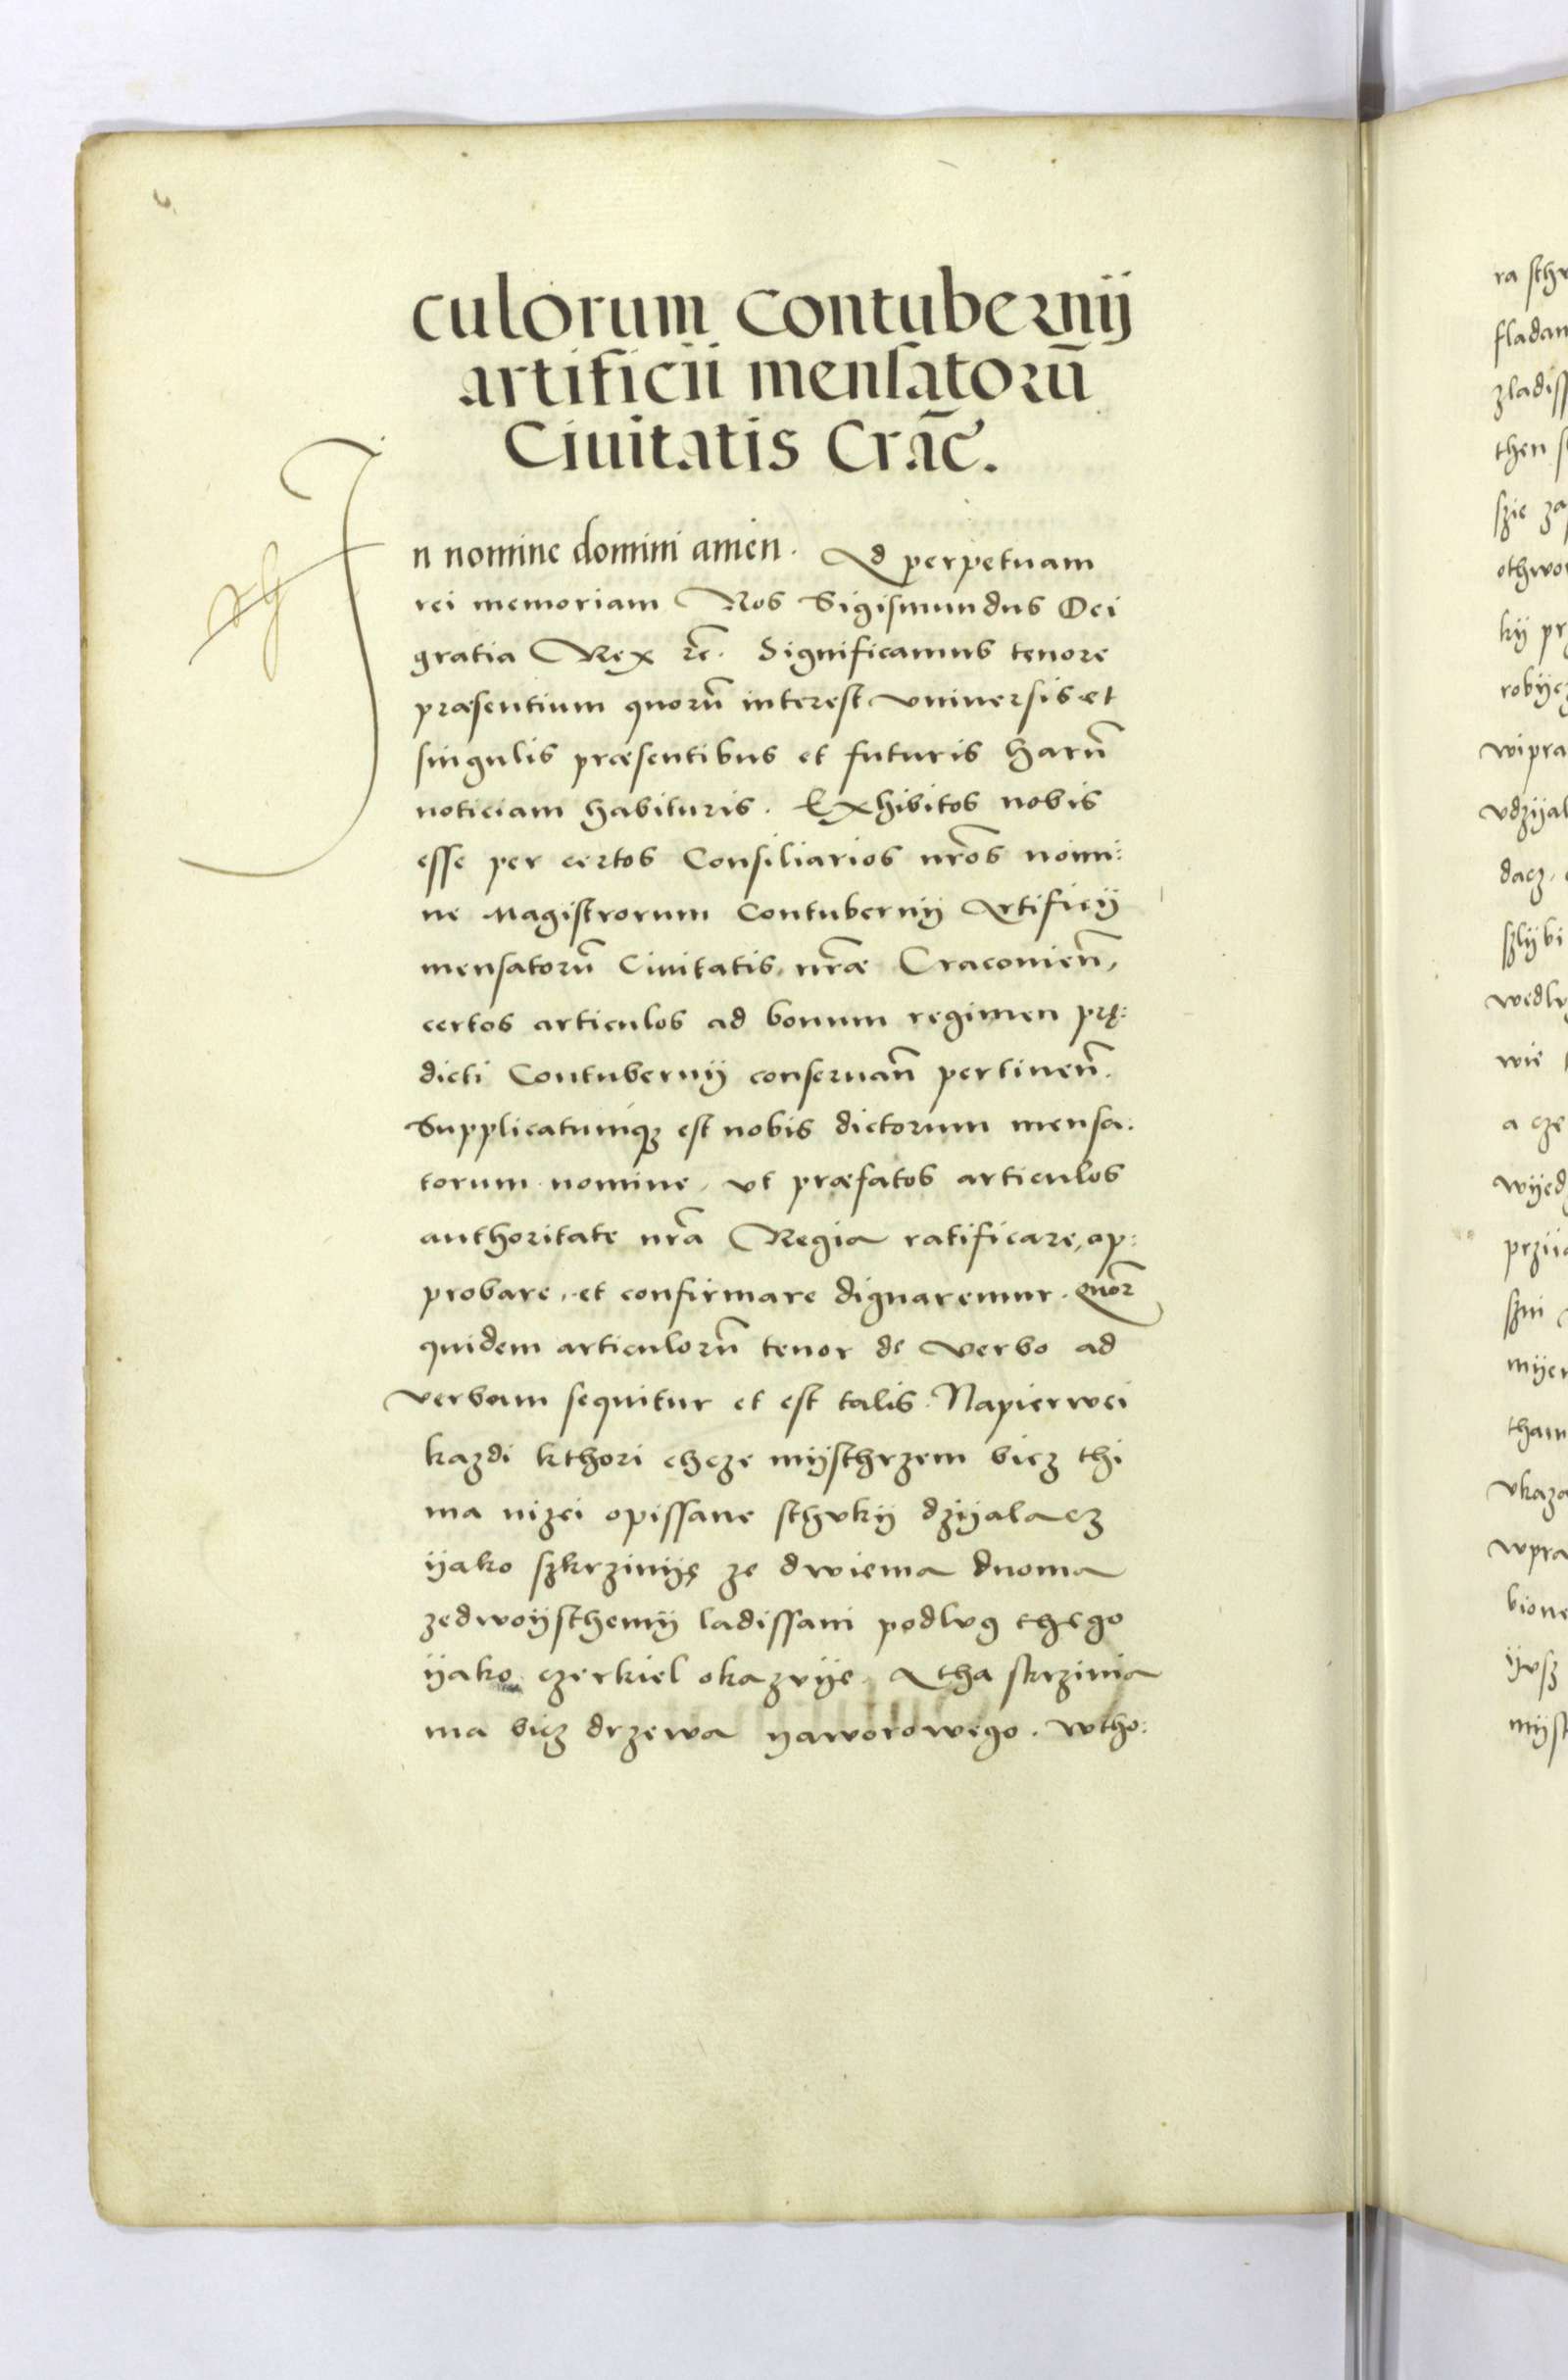 culorum contubernij
artificii mensatorū
Ciuitatis Crac̄.
In nomine domini amen. Ad perpetuam
rei memoriam Nos Sigismundus Dei
gratia Rex zc̄. Significamus tenore
præsentium quorū interest vniuersis et
singulis præsentibus et futuris harū
noticiam habituris. Exhibitos nobis
esse per certos Consiliarios nr̄os nomi:
ne Magistrorum Contubernij Artificij
mensatorū Ciuitatis nr̄æ Cracouien̄,
certos articulos ad bonum regimen prę:
dicti Contubernij conseruan̄ pertinen̄.
Supplicatumq3 est nobis dictorum mensa:
torum nomine, vt præfatos articulos
authoritate nr̄a Regia ratificare, ap:
probare, et confirmare dignaremur. Quor̄
quidem articulorū tenor de verbo ad
verbum sequitur et est talis. Napierwei
kazdi kthori chcze mijsthrzem bicz thi
ma nizei opissane sthvkij dzijalacz
ijako szkrzinije ze dwiema dnoma
zedwoijsthemij ladissani podlvg thego
ijako czerkiel okazvije. A tha skrzinia
ma bicz drzewa yaworowego. wtho:
ra sthv
fladan
zladiss
then s
szie za
othwo
kij pr
robijcz
wipra
vdzijal
dacz.
szlij bi
wedlv
wie
a cze
wijed
przija
szni
mijer
tham
vkaza
wpra
bione
ijvsz
mijst